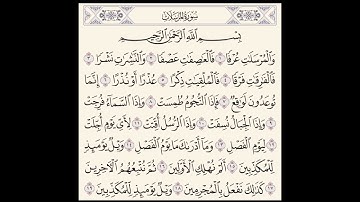 سورة المرسلات
بِسْمِ ٱللَّهِ ٱلرَّحْمَٰنِ ٱلرَّحِيمِ
وَٱلْمُرْسَلَٰتِ عُرْفًا ١ فَٱلْعَٰصِفَٰتِ عَصْفًا ٢ وَٱلنَّٰشِرَٰتِ نَشْرًا
٣ فَٱلْفَٰرِقَٰتِ فَرْقًا ٤ فَٱلْمُلْقِيَٰتِ ذِكْرًا ٥ عُذْرًا أَوْ نُذْرًا ٦ إِنَّمَا
تُوعَدُونَ لَوَٰقِعٌ ٧ فَإِذَا ٱلنُّجُومُ طُمِسَتْ ٨ وَإِذَا ٱلسَّمَآءُ فُرِجَتْ
٩ وَإِذَا ٱلْجِبَالُ نُسِفَتْ ١٠ وَإِذَا ٱلرُّسُلُ أُقِّتَتْ ١١ لِأَىِّ يَوْمٍ أُجِّلَتْ
١٢ لِيَوْمِ ٱلْفَصْلِ ١٣ وَمَآ أَدْرَىٰكَ مَا يَوْمُ ٱلْفَصْلِ ١٤ وَيْلٌ يَوْمَئِذٍ
لِّلْمُكَذِّبِينَ ١٥ أَلَمْ نُهْلِكِ ٱلْأَوَّلِينَ ١٦ ثُمَّ نُتْبِعُهُمُ ٱلْءَاخِرِينَ
١٧ كَذَٰلِكَ نَفْعَلُ بِٱلْمُجْرِمِينَ ١٨ وَيْلٌ يَوْمَئِذٍ لِّلْمُكَذِّبِينَ ١٩